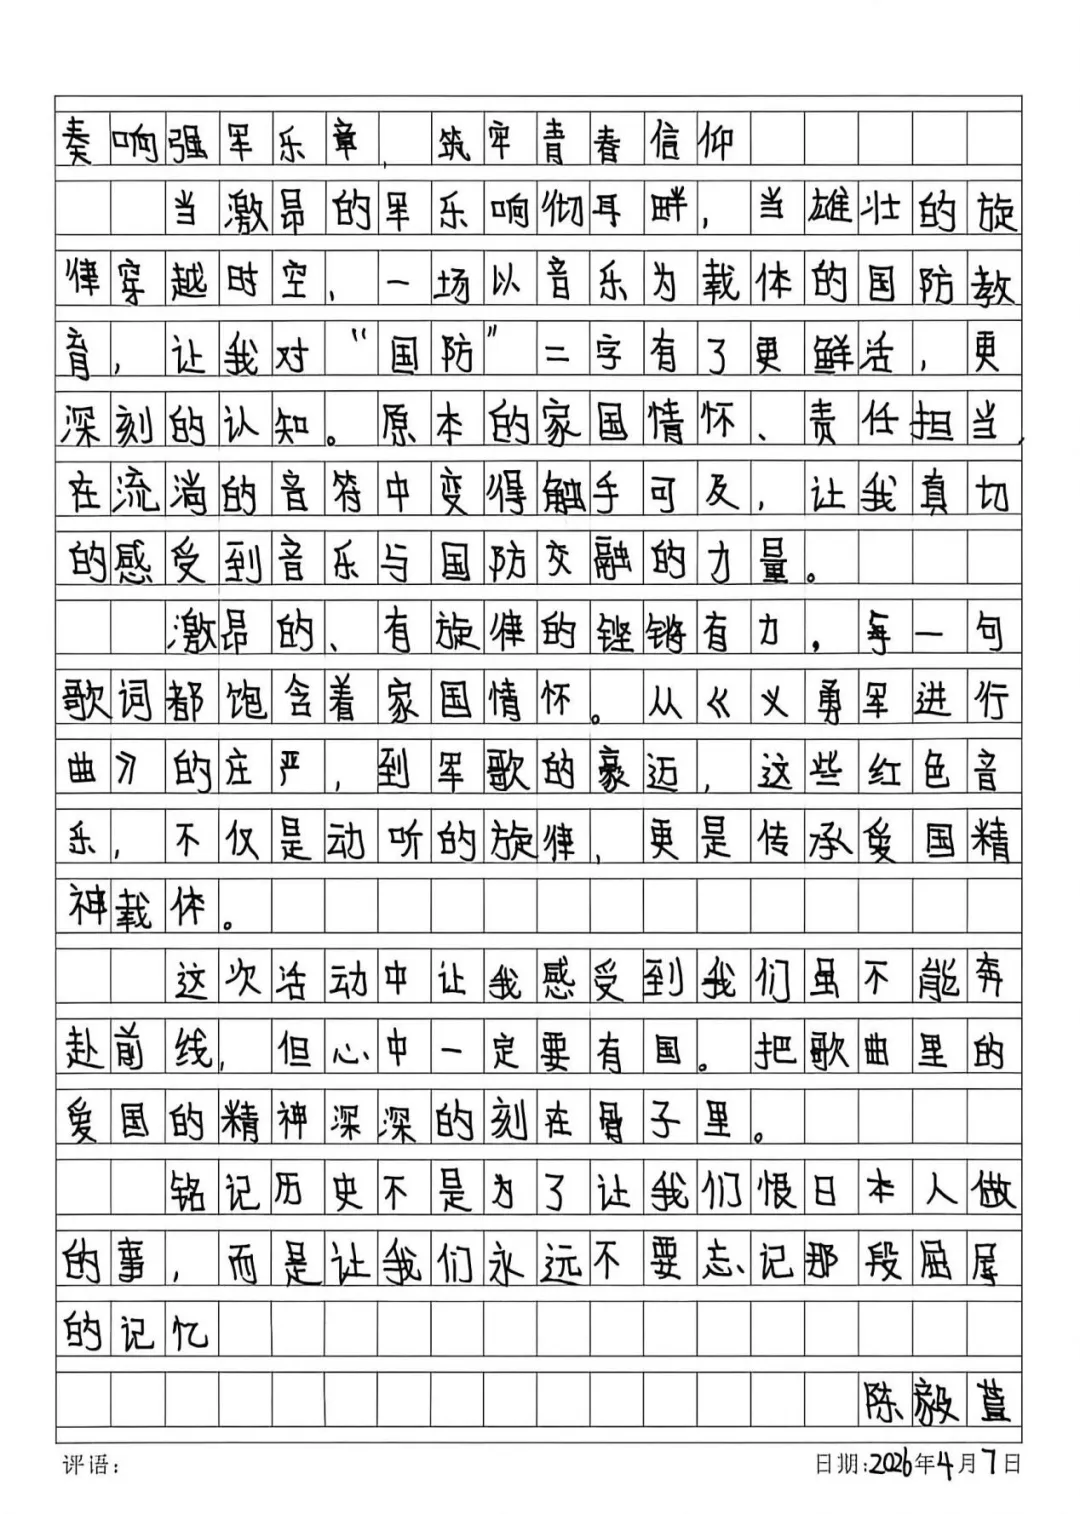 奏响强军乐章，筑牢青春信仰
当激昂的军乐响彻耳畔，当雄壮的旋
律穿越时空、一场以音乐为载体的国防教
育，让我对“国防”二字有了更鲜活，更
深刻的认知。原本的家国情怀、责任担当，
在流淌的音符中变得触手可及，让我真切
的感受到音乐与国防交融的力量。
激昂的、有旋律的铿锵有力，每一句
歌词都饱含着家国情怀。从《义勇军进行
曲》的庄严，到军歌的豪迈，这些红色音
乐，不仅是动听的旋律，更是传承爱国精
神载体。
这次活动中让我感受到我们虽不能奔
赴前线，但心中一定要有国。把歌曲里的
爱国的精神深深的刻在骨子里。
铭记历史不是为了让我们恨日本人做
的事，而是让我们永远不要忘记那段屈辱
的记忆
陈毅萱
评语：
日期：2026年4月7日